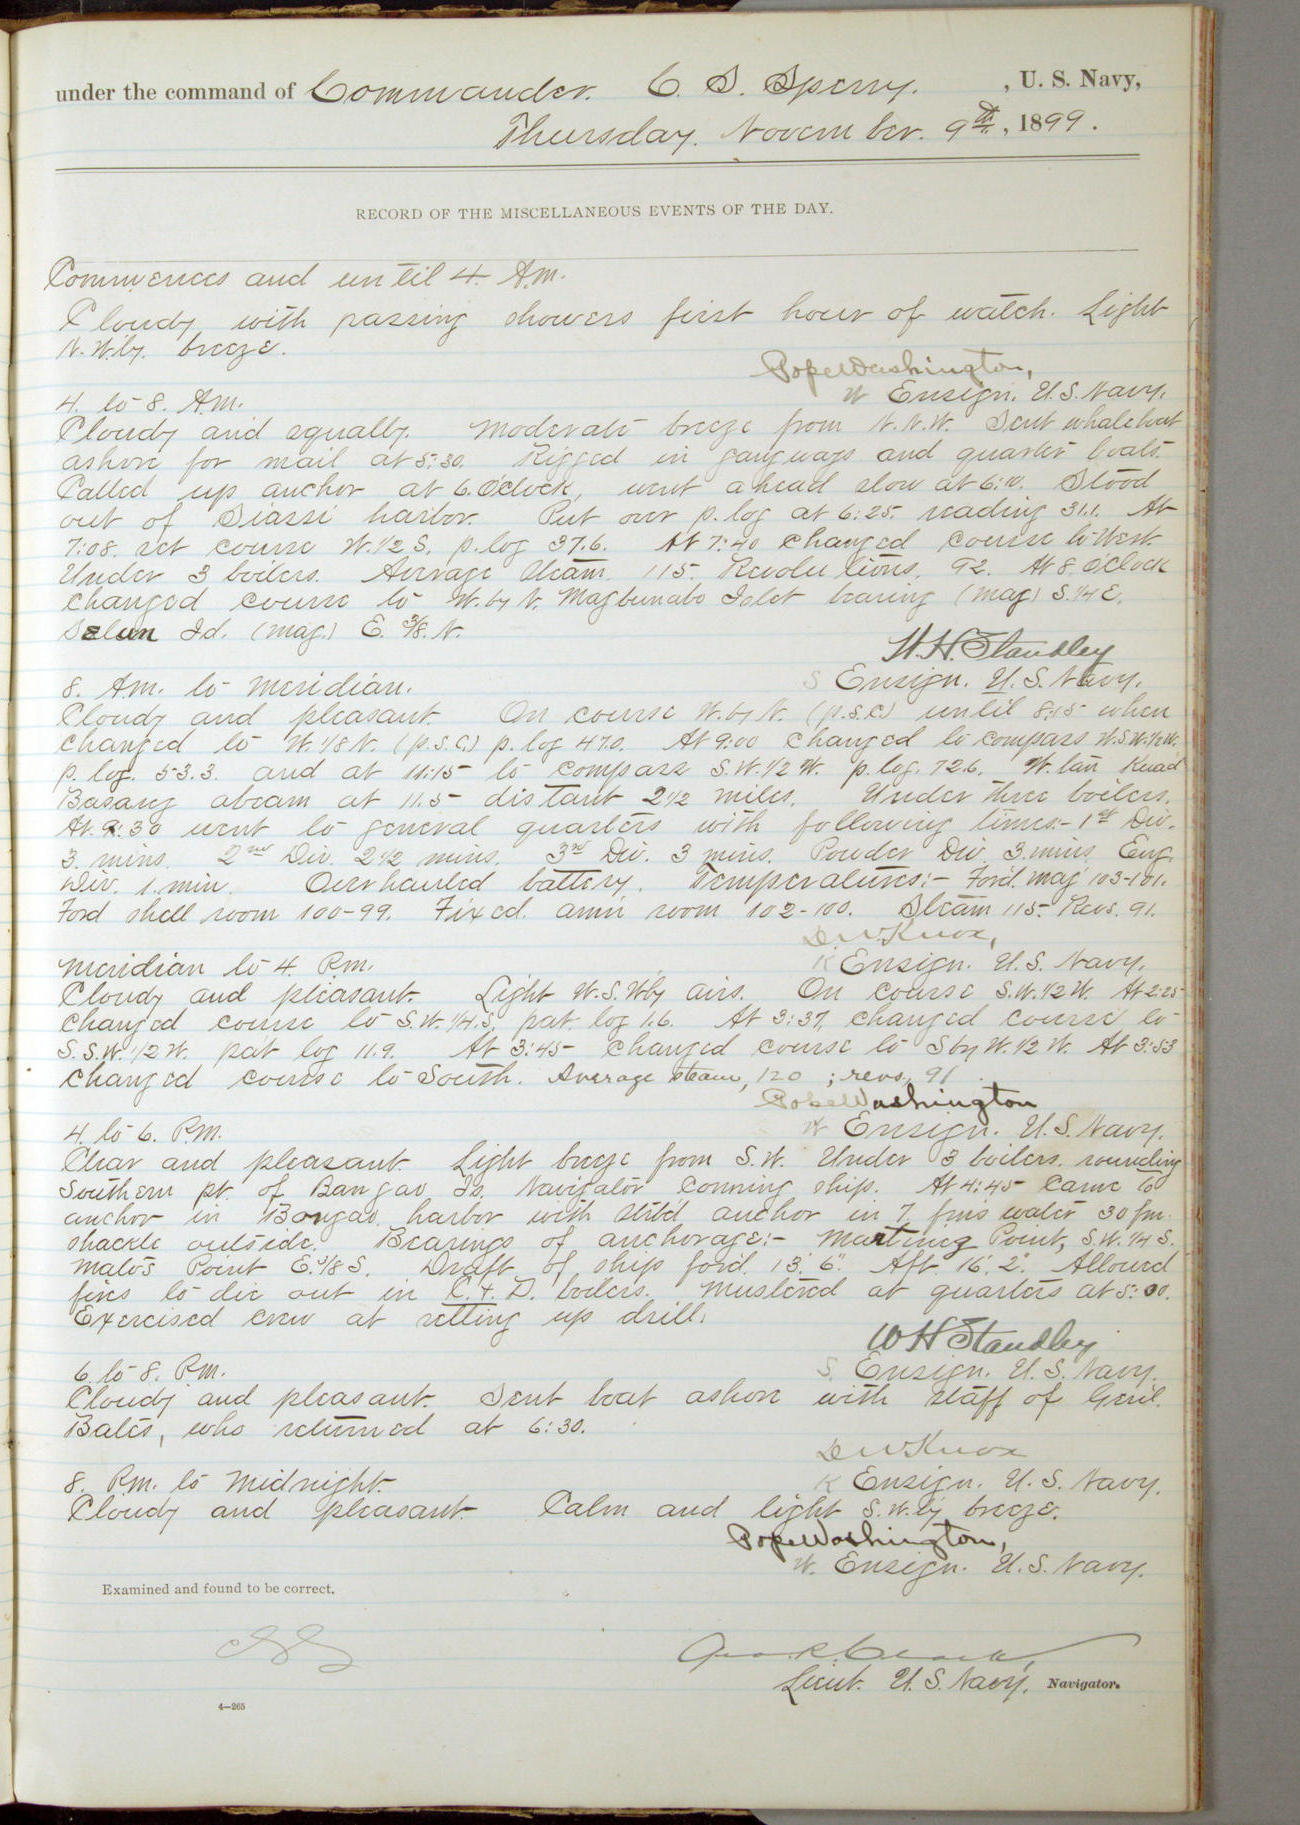 under the command of Commander. C. S. Sperry. , U. S. Navy,
Thursday. November. 9th, 1899.
RECORD OF THE MISCELLANEOUS EVENTS OF THE DAY.
Commences and until 4. A.m.
Cloudy with passing showers first hour of watch. Light
N.W'ly. breeze.
Pope Washington,
W Ensign. U.S. Navy.
4. to 8. A.m.
Cloudy and squally. Moderate breeze from N.N.W. Sent whaleboat
ashore for mail at 5:30. Rigged in gangways and quarter boats.
Called up anchor at 6. O'clock, went ahead slow at 6:10. Stood
out of Siassi harbor. Put over p. log at 6:25. reading 31.1. At
7:08. set course W.1/2 S. p. log 37.6. At 7:40 changed course to West.
Under 3 boilers. Average Steam. 115. Revolutions. 92. At 8. O'clock
changed course to W. by N. Magbunabo Islet bearing (mag) S.1/4 E.
Id. (mag.) E. 3/8. N.
W.H. Standley
S Ensign. U.S. Navy.
8. A.m. to meridian.
Cloudy and pleasant. On course W. by N. (p.s.c.) until 8:15 when
changed to W. 1/8 N. (p.s.c.) p. log 47.0. At 9:00 changed to compass W.S.W.1/2 W.
p. log. 53.3. and at 11:15 to compass S.W. 1/2 W. p. log. 72.6. W. tan
Basang abeam at 11.5 distant 2 1/2 miles. Under three boilers.
At 9:30 went to general quarters with following times:- 1st Div.
3. mins. 2nd Div. 2 1/2 mins. 3rd Div. 3 mins. Powder Div. 3. mins. Eng.
Div. 1. min. Overhauled battery. Temperatures:- For'd. mag 103-101.
For'd shell room 100-99. Fixed. am'n room 102-100. Steam 115. Revs. 91.
D. W. Knox,
K Ensign. U.S. Navy.
Meridian to 4. P.m.
Cloudy and pleasant. Light W.S.W'ly airs. On course S.W.1/2 W. At 2:25
changed course to S.W. 1/4.S. pat. log 1.6. At 3:37, changed course to
S.S.W. 1/2 W. pat log 11.9. At 3:45 changed course to S by W. 1/2 W. At 3:53
changed course to South. Average steam, 120 ; revs., 91.
Pope Washington
W Ensign. U.S. Navy.
4. to 6. P.m.
Clear and pleasant. Light breeze from S.W. Under 3 boilers. rounding
Southern pt. of Bangao Is. Navigator Conning ship. At 4:45 came to
anchor in Bongao harbor with stb'd anchor in 7. fms water 30 fm.
shackle outside. Bearings of anchorage:- Point, S.W. 1/4 S.
Point E. 3/8 S. Draft of ship for'd. 13'. 6". Aft. 16'. 2". Allowed
fires to die out in C. & D. boilers. Mustered at quarters at 5:00.
Exercised crew at setting up drill.
W H Standley
S. Ensign. U.S. Navy.
6. to 8. P.m.
Cloudy and pleasant. Sent boat ashore with staff of Gen'l.
Bates, who returned at 6:30.
D W Knox
K Ensign. U.S. Navy.
8. P.m. to Midnight.
Cloudy and pleasant. Calm and light S.W.'ly breeze.
Pope Washington,
W. Ensign. U.S. Navy.
Examined and found to be correct.
Lieut. U.S. Navy, Navigator.
4—265